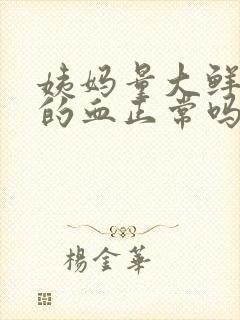 姨妈量大鲜
的血正常吗
楊金華